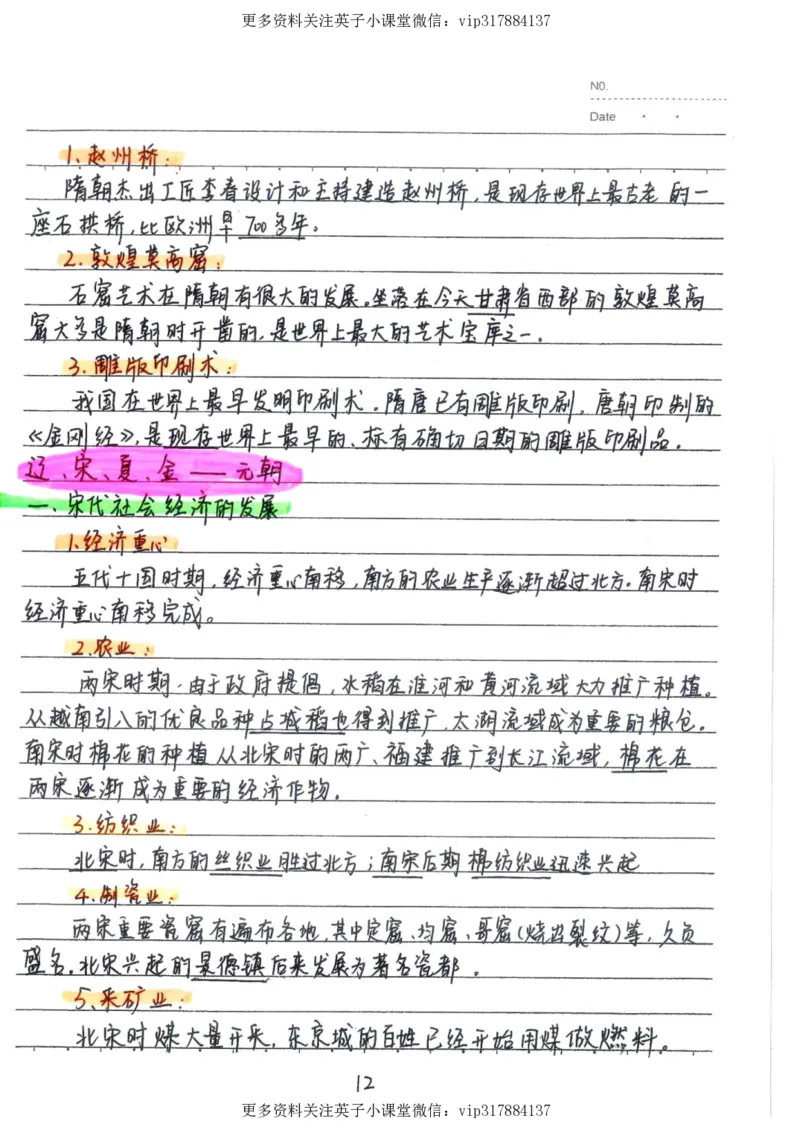 更多资料关注英子小课堂微信：vip317884137
NO.
Date
1.赵州桥：
隋朝杰出工匠李春设计和主持建造赵州桥，是现存世界上最古老的一
座石拱桥，比欧洲早700多年。
2.敦煌莫高窟：
石窟艺术在隋朝有很大的发展。坐落在今天甘肃省西部的敦煌莫高
窟大多是隋朝时开凿的，是世界上最大的艺术宝库之一。
3.雕版印刷术：
我国在世界上最早发明印刷术。隋唐已有雕版印刷，唐朝印制的
《金刚经》，是现存世界上最早的、标有确切日期的雕版印刷品。
辽、宋、夏、金——元朝
一、宋代社会经济的发展
1.经济重心
五代十国时期，经济重心南移，南方的农业生产逐渐超过北方。南宋时
经济重心南移完成。
2.农业：
两宋时期，由于政府提倡，水稻在淮河和黄河流域大力推广种植。
从越南引入的优良品种占城稻也得到推广，太湖流域成为重要的粮仓。
南宋时棉花的种植从北宋时的两广、福建推广到长江流域，棉花在
两宋逐渐成为重要的经济作物。
3.纺织业：
北宋时，南方的丝织业胜过北方；南宋后期棉纺织业迅速兴起
4.制瓷业：
两宋重要瓷窑有遍布各地，其中定窑、均窑、哥窑（烧出裂纹）等，久负
盛名。北宋兴起的景德镇后来发展为著名瓷都。
5.采矿业：
北宋时煤大量开采，东京城的百姓已经开始用煤做燃料。
12
更多资料关注英子小课堂微信：vip317884137